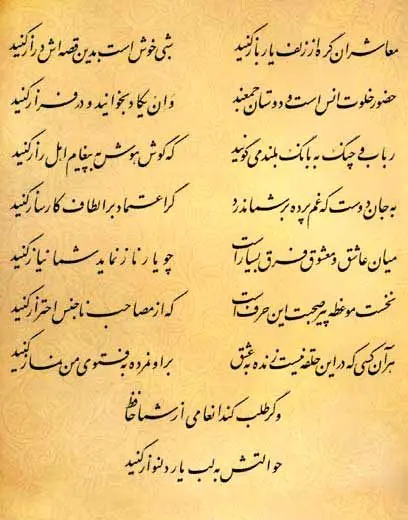 معاشران گره از زلف یار باز کنید شبی خوش است بدین قصه اش دراز کنید
حضور خلوت انس است و دوستان جمعند و ان یکاد بخوانید و در فراز کنید
رباب و چنگ به بانگ بلند می گویند که گوش هوش به پیغام اهل راز کنید
به جان دوست که غم پرده بر شما ندرد گر اعتماد بر الطاف کارساز کنید
میان عاشق و معشوق فرق بسیار است چو یار ناز نماید شما نیاز کنید
نخست موعظه پیر صحبت این حرف است که از مصاحب ناجنس احتراز کنید
هر آن کسی که در این حلقه نیست زنده به عشق بر او نمرده به فتوی من نماز کنید
وگر طلب کند انعامی از شما حافظ
حوالتش به لب یار دلنواز کنید